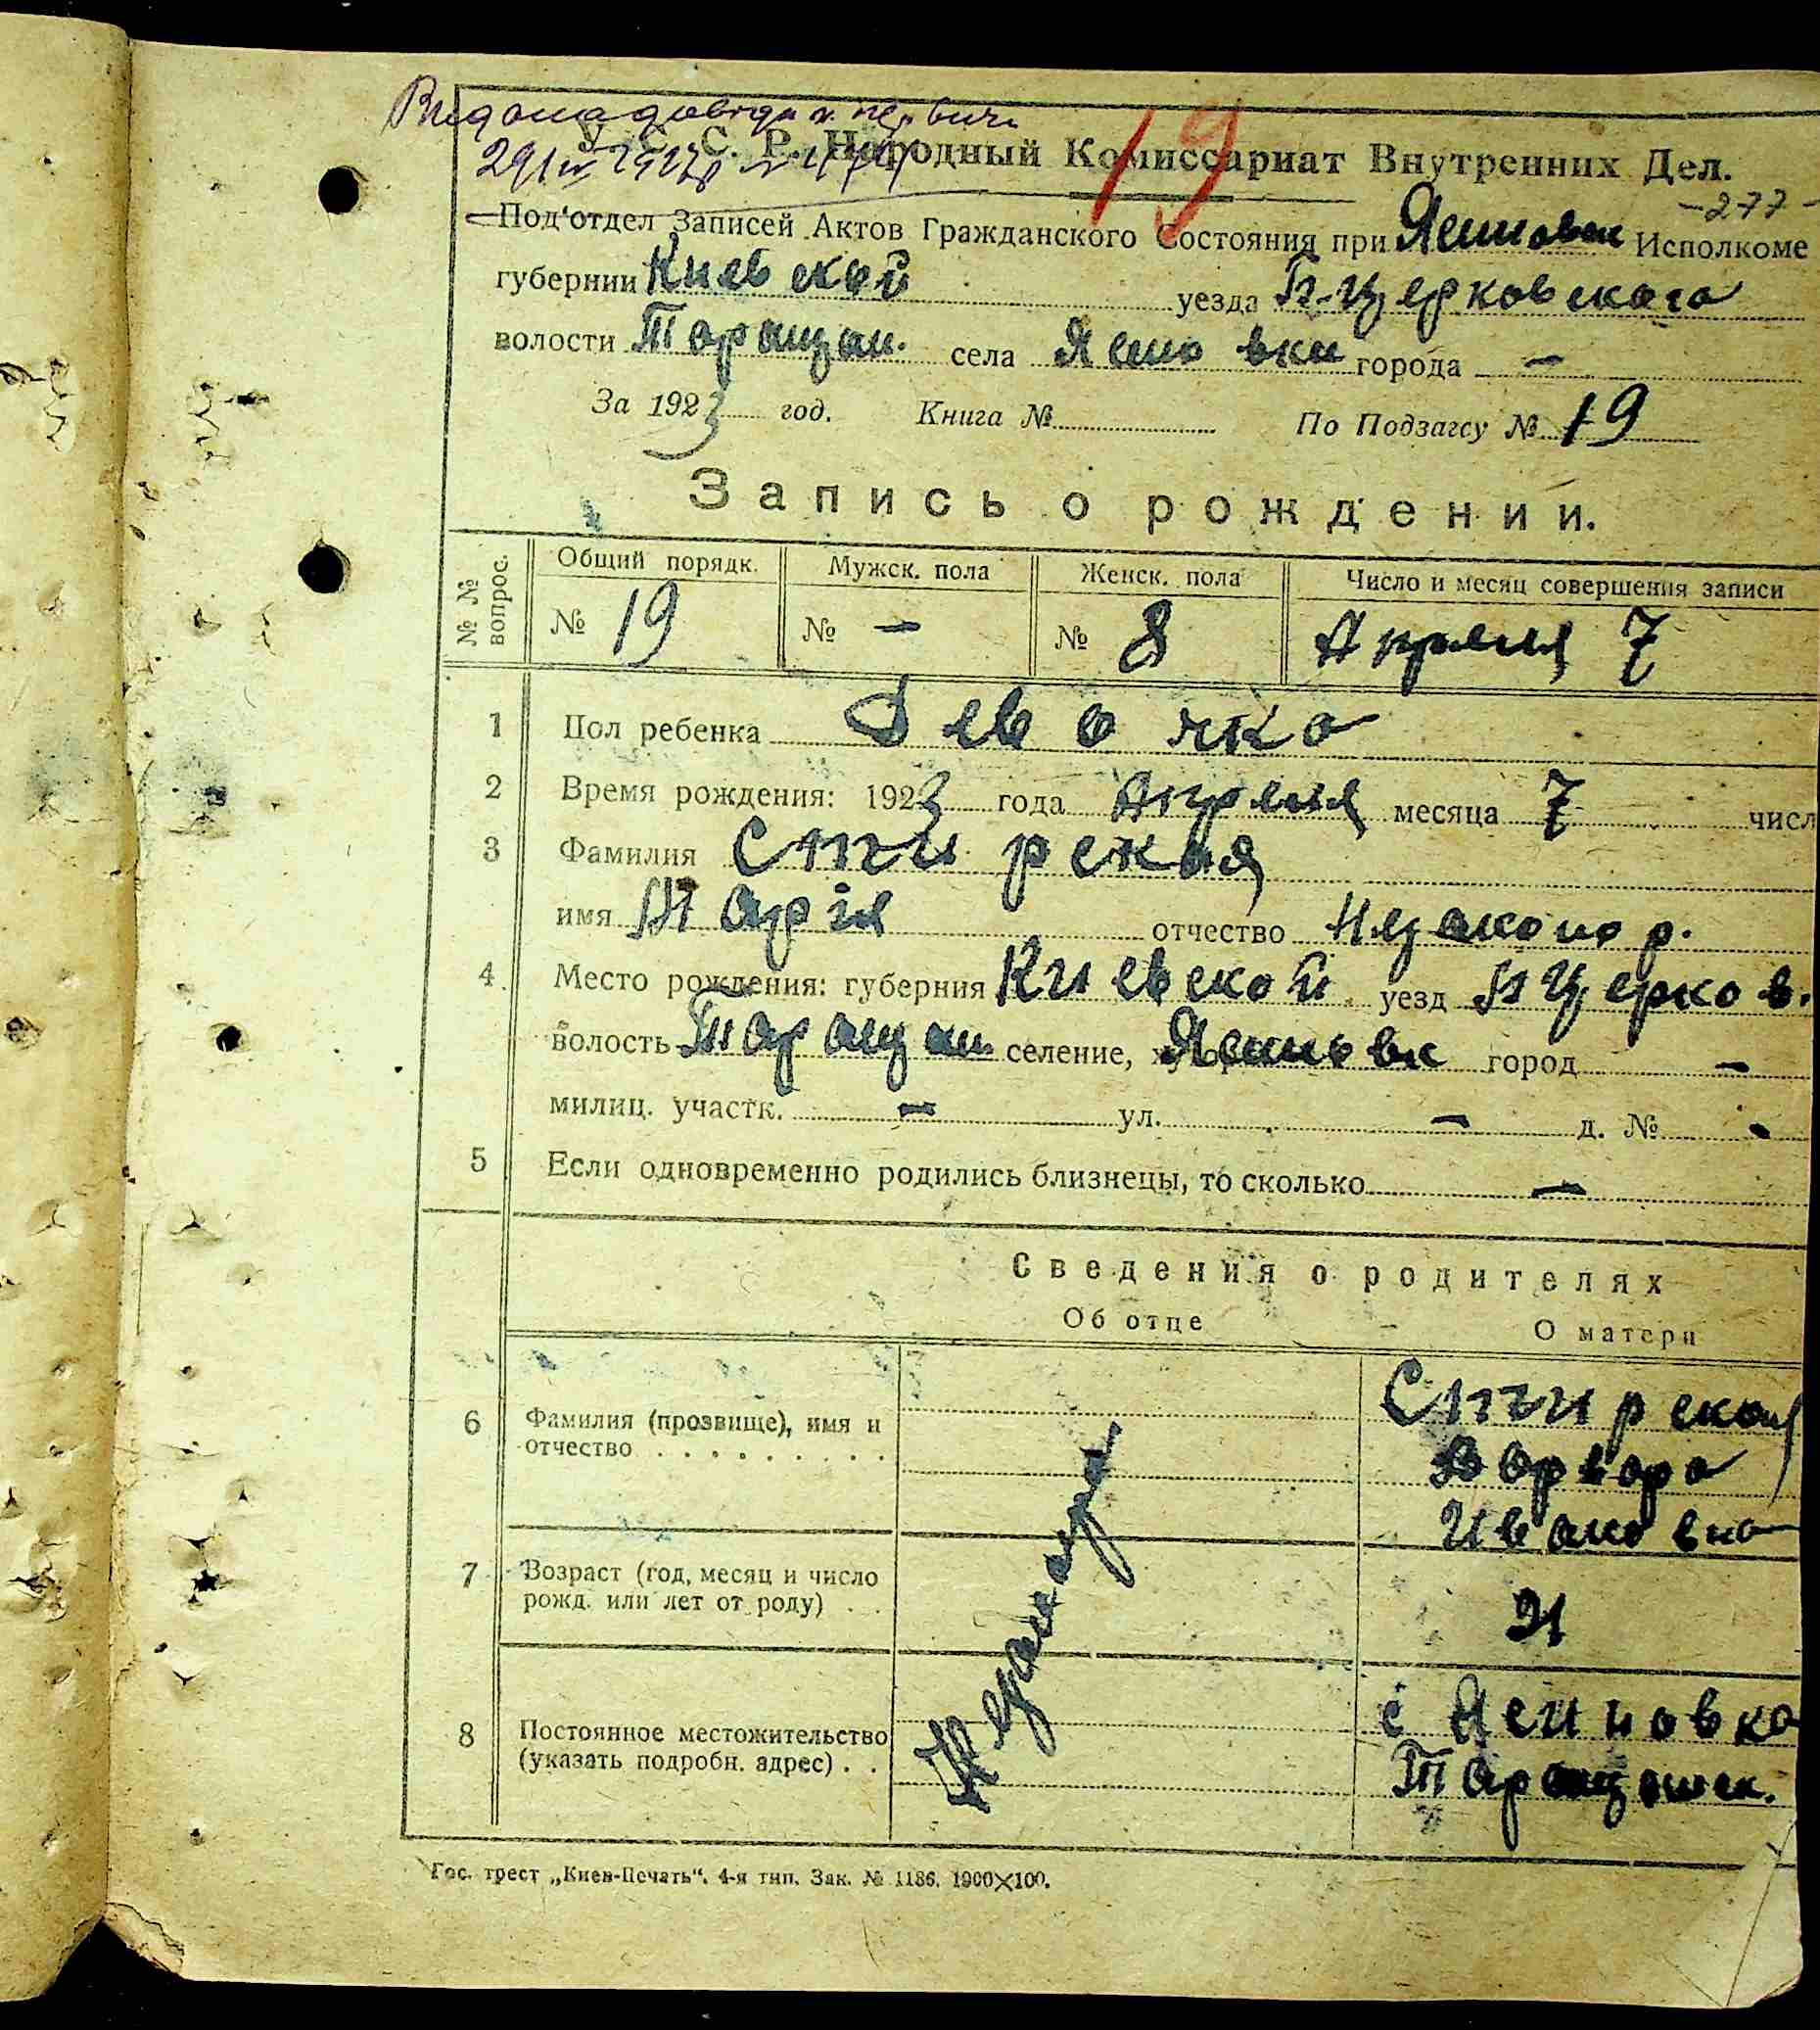 19
У. С. С. Р. Народный Комиссариат Внутренних Дел.
-277-
Под'отдел Записей Актов Гражданского Состояния при Ясиновск Исполкоме
губернии Киевской уезда Б-Церковского
волости Таращан. села Ясиновки города —
За 1923 год. Книга № По Подзагсу № 19
Запись о рождении.
№ № вопрос. Общий порядк. Мужск. пола Женск. пола Число и месяц совершения записи
№ 19 № — № 8 Апреля 7
1 Пол ребенка Девочка
2 Время рождения: 1923 года Апреля месяца 7 числ
3 Фамилия Стирская
имя Марія отчество
4 Место рождения: губерния Киевской уезд Б Церков.
волость Таращан селение, Ясиновк город —
милиц. участк. — ул. — д. № -
5 Если одновременно родились близнецы, то сколько —
Сведения о родителях
Об отце О матери
6 Фамилия (прозвище), имя и отчество Стирская
Варвара
Ивановна
7 Возраст (год, месяц и число рожд. или лет от роду) 21
8 Постоянное местожительство (указать подробн. адрес) с Ясиновка
Таращанск.
Гос. трест „Киев-Печать“. 4-я тип. Зак. № 1186. 1900×100.